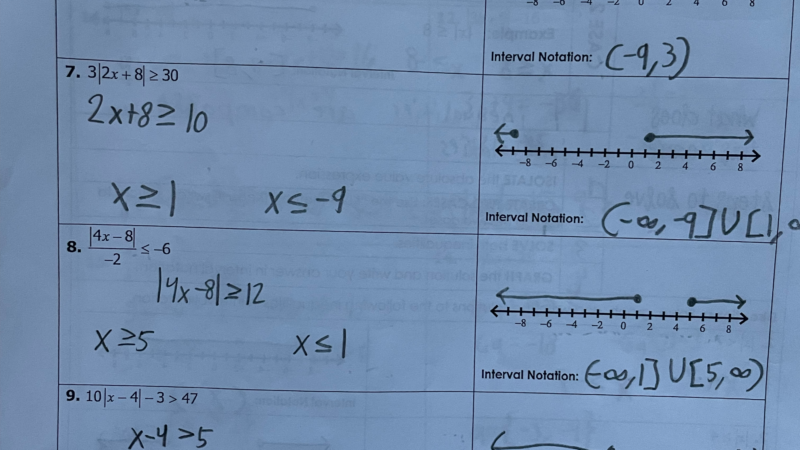 -8 -6 -4 -2 0 2 4 6 8
Interval Notation: (-9,3)
7. 3|2x + 8| ≥ 30
2x+8 ≥ 10
x ≥ 1 x ≤ -9
-8 -6 -4 -2 0 2 4 6 8
Interval Notation: (-∞, -9] U [1, ∞
8. |4x – 8| / -2 ≤ -6
|4x-8| ≥ 12
x ≥ 5 x ≤ 1
-8 -6 -4 -2 0 2 4 6 8
Interval Notation: (-∞, 1] U [5, ∞)
9. 10|x – 4| – 3 > 47
x-4 > 5